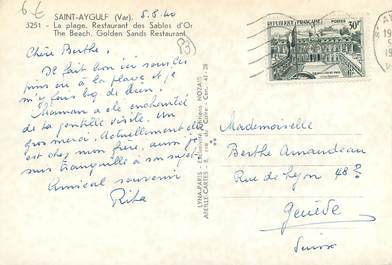 6 €
SAINT-AYGULF (Var).
5.8.60
3251. - La plage, Restaurant des Sables d'Or
The Beach, Golden Sands Restaurant
Chère Berthe,
Il fait bon ici sous les
pins ou à la plage et je
m'y fais big de bien!
Maman a été enchantée
de ta gentille visite. Un
gros merci. Actuellement elle
est chez mon frère, aussi je
suis tranquille à son sujet.
Amical souvenir
Rita
LYNA-PARIS - Editions MOZAIS
ABEILLE-CARTES - 8, rue du Caire - Cen. 41-28
RÉPUBLIQUE FRANÇAISE
POSTES
30F
Mademoiselle
Berthe Amandeau
Rue de Lyon 48
Genève
Suisse